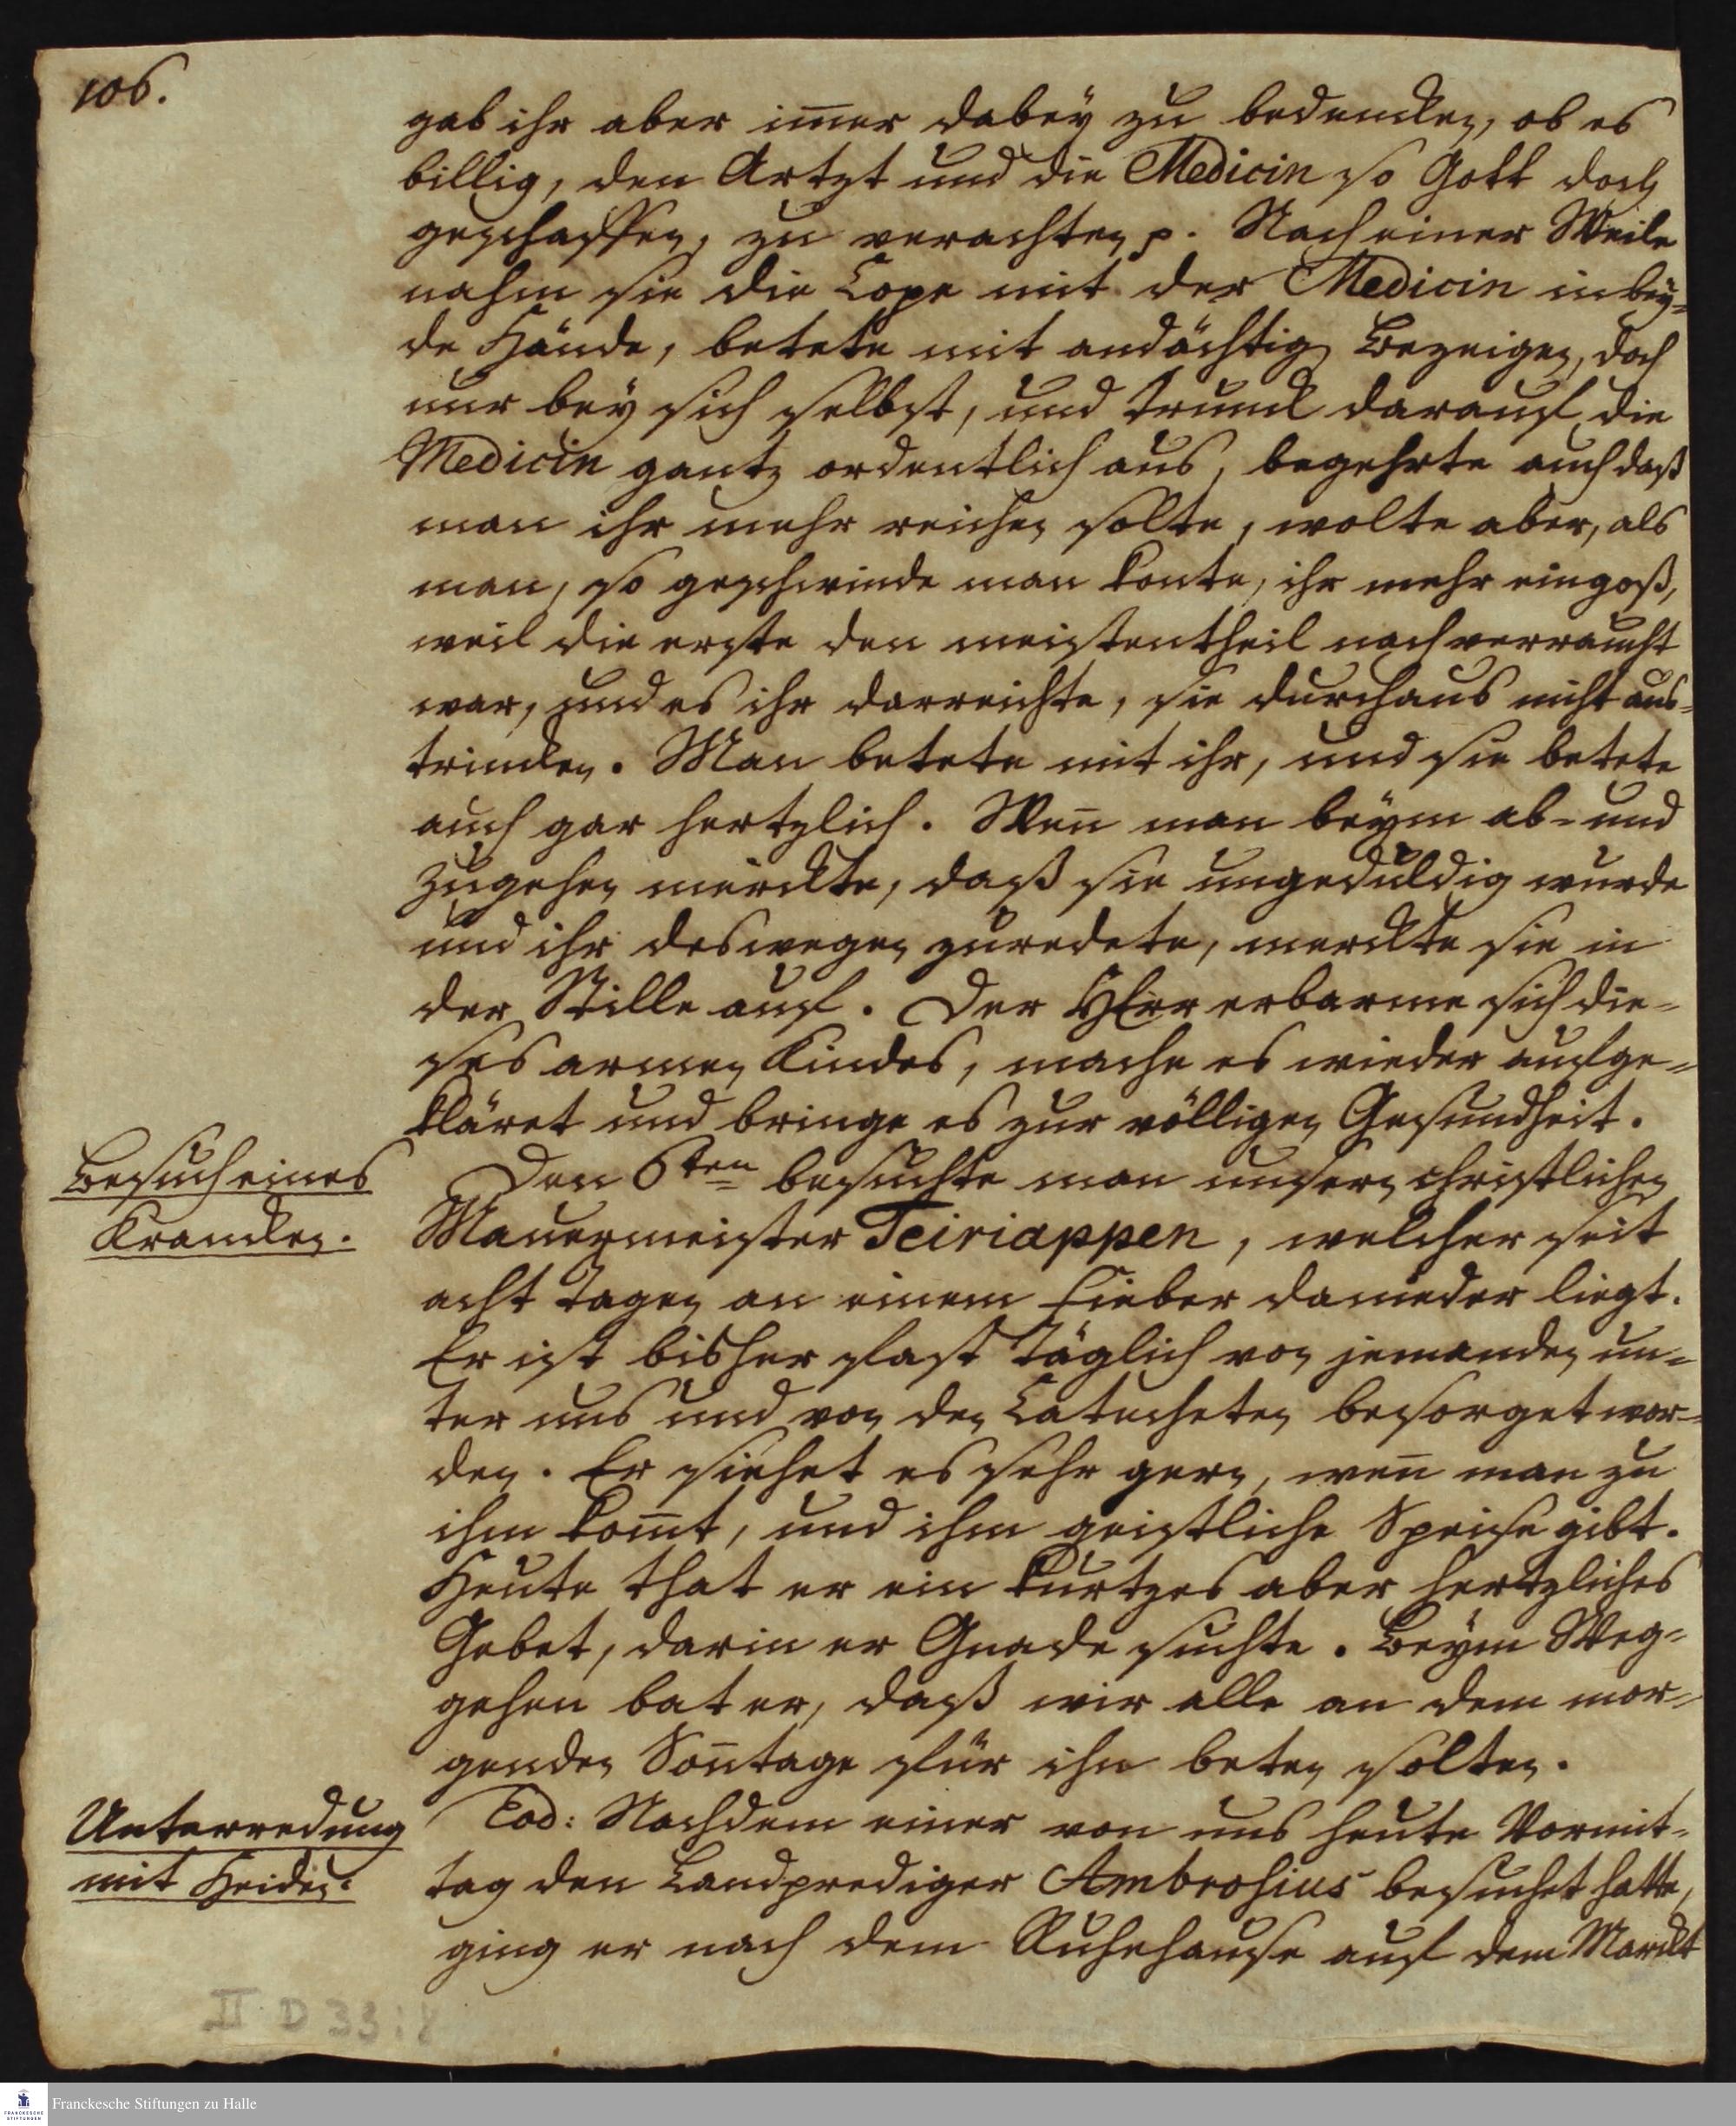 106.
gab ihr aber im̄er dabeÿ zu bedencken, ob es
billig, den Artzt und die Medicin so Gott doch
geschaffen, zu verachten p. Nach einer Weile
nahm sie die Cope mit der Medicin in beÿ-
de Hände, betete mit andächtig Bezeigen, doch
nur beÿ sich selbst, und trunck darauf die
Medicin gantz ordentlich aus, begehrte auch daß
man ihr mehr reichen solte, wolte aber, als
man, so geschwinde man konte, ihr mehr eingoß,
weil die erste den meistentheil verraucht
war, und es ihr darreichte, sie durchaus nicht aus-
trincken. Man betete mit ihr, und sie betete
auch gar hertzlich. Wen̄ man beÿm ab- und
zugehen merckte, daß sie ungeduldig wurde
und ihr deswegen zuredete, merckte sie in
der Stille auf. Der HErr erbarme sich die-
ses armen Kindes, mache es wieder aufge-
kläret und bringe es zur völligen Gesundheit.
Besuch eines
Krancken.
Den 6ten besuchte man unsern christlichen
Mauermeister Teiriappen, welcher seit
acht Tagen an einem Fieber danieder liegt.
Er ist bisher fast täglich von jemanden un-
ter uns und von den Catecheten besorget wor-
den. Er siehet es sehr gern, wen̄ man zu
ihm kom̄t, und ihm geistliche Speise gibt.
Heute that er ein kurtzes aber hertzliches
Gebet, darin er Gnade suchte. Beÿm Weg-
gehen bat er, daß wir alle an dem mor-
genden Son̄tage für ihn beten solten.
Unterredung
mit Heiden.
Eod: Nachdem einer von uns heute Vormit-
tag den Landprediger Ambrosius besuchet hatte,
ging er nach dem Ruhehause auf dem Marckt
II D 33:8
Franckesche Stiftungen zu Halle